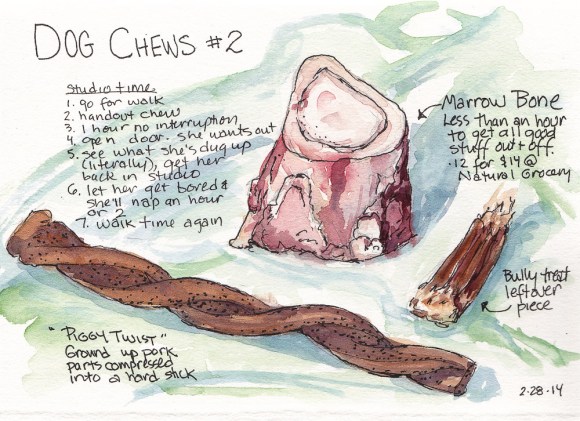 DOG CHEWS #2
studio time.
1. go for walk
2. handout chew
3. 1 hour no interruption
4. open door. she wants out
5. see what she's dug up
(literally), get her
back in studio
6. let her get bored &
she'll nap an hour
or 2
7. walk time again
Marrow Bone
Less than an hour
to get all good
stuff out + off.
·12 for $14@
Natural Grocery
Bully treat
leftover
piece
"Piggy Twist"
Ground up pork
parts compressed
into a hard stick
2·28·14